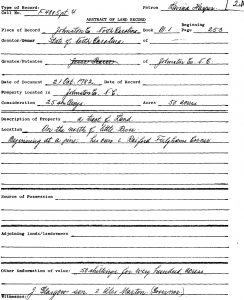 Type of Record:
Patron
Call No.
ABSTRACT OF LAND RECORD
Place of Record Johnston Co North Carolina Book Beginning Page 253
Grantor/Owner State of North Carolina of
Grantee/Patentee of Johnston Co N. C.
Date of Document 21 Oct. 1782 Date of Record
Property located in Johnston Co. N. C.
Consideration 25 shillings Acres 50 acres
Description of Property a tract of Land
Location On the north of little River
Beginning at a pine:
Source of Possession
Adjoining lands/landowners
Other information of value: 50 shillings for every hundred acres
J Glasgow sec Alex Martin (Governor)
Witnesses: